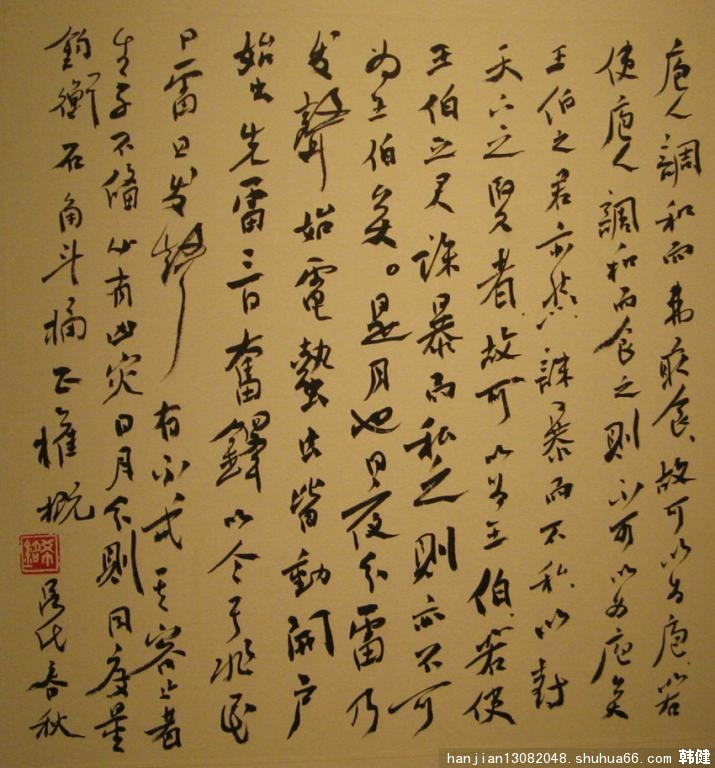 庖人調和而弗敢食故可以为庖若
使庖人調和而食之則不可以为庖矣
王伯之君亦然誅暴而不私以封
天下之賢者故可以为王伯若使
王伯之君誅暴而私之則亦不可
为王伯矣。是月也日夜分雷乃
发聲始電蟄虫皆動開戶
始出先雷三日奮鐸以令于兆民
曰雷且发聲有不戒其容止者
生子不備必有凶灾日月分則同度量
鈞衡石角斗桶正權概
吕氏春秋
hanjian13082048.shuhua66.com 韩健